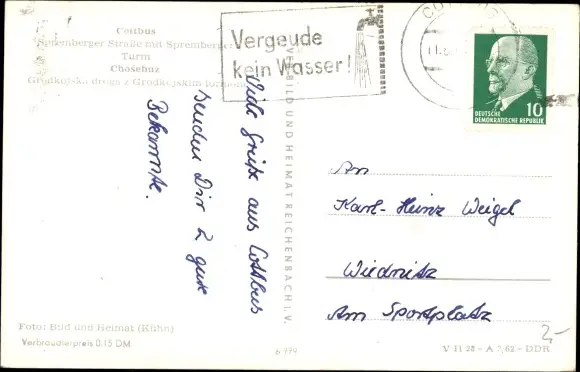 Cottbus
Spremberger Straße mit Spremberger
Turm
Chośebuz
Grodkojska droga z Grodkojskim
Vergeude
kein Wasser!
11.8
10
DEUTSCHE
DEMOKRATISCHE REPUBLIK
Viele Grüße aus Cottbus
senden Dir 2 gute
Bekannte.
BILD UND HEIMAT REICHENBACH i. V.
An
Karl-Heinz Weigel
Wiednitz
Am Sportplatz
Foto: Bild und Heimat (Kühn)
Verbraucherpreis 0,15 DM
6 199
V 11 28 - A 7/62 - DDR
2,-